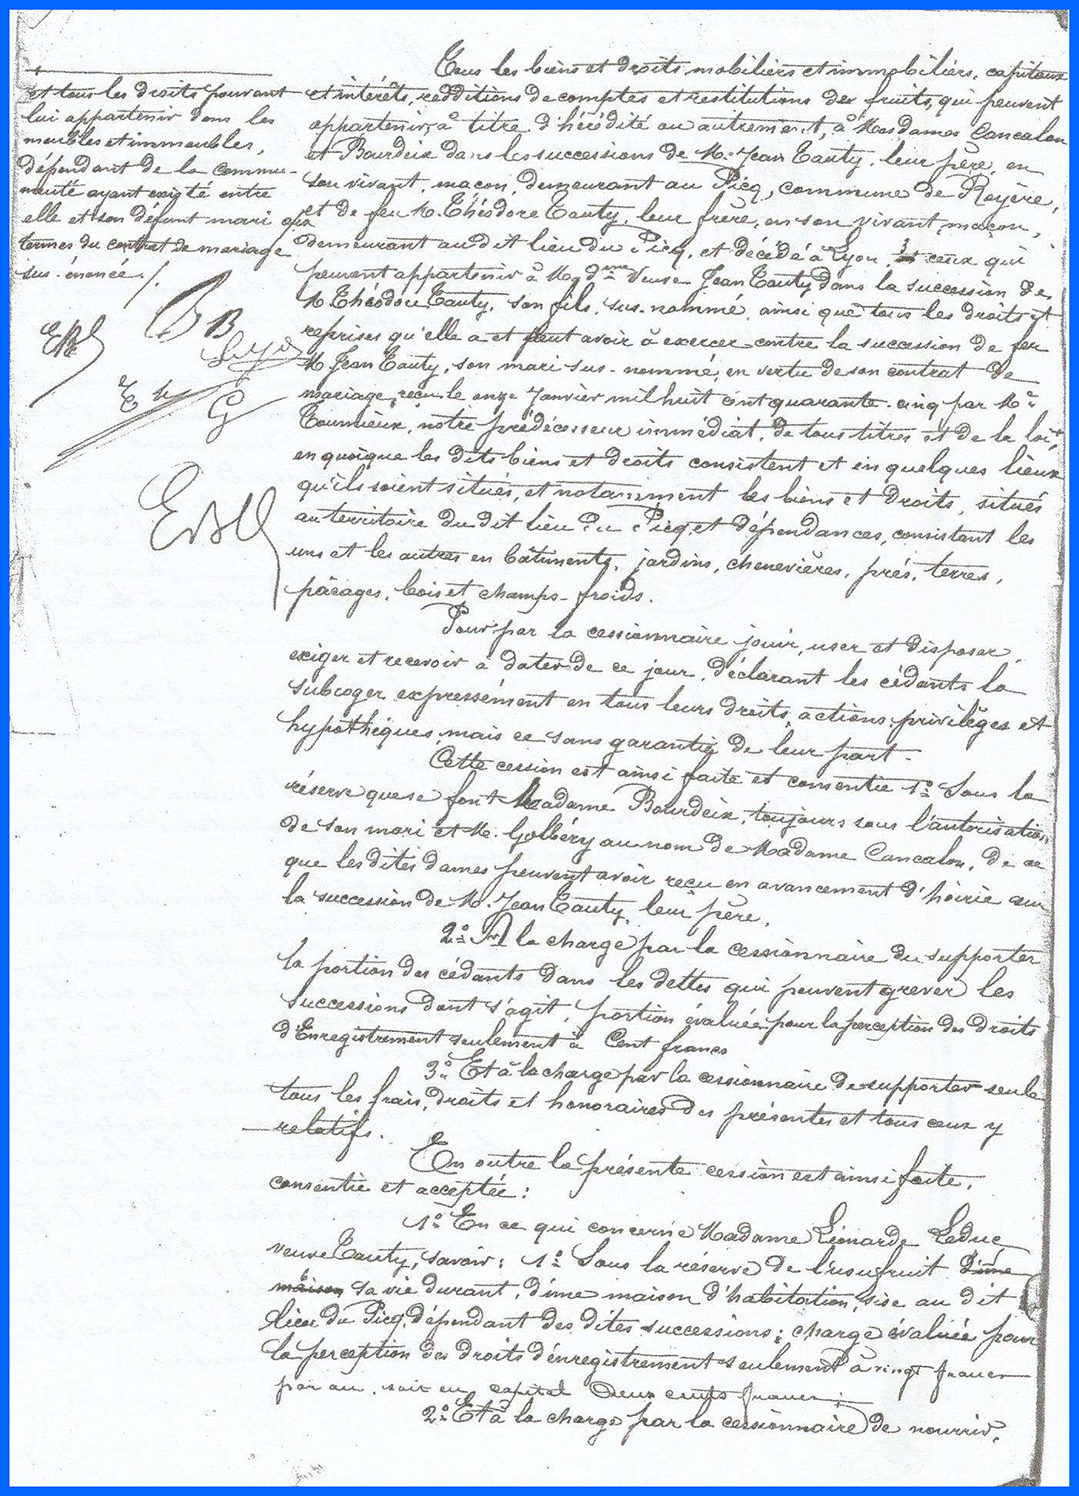 et tous les droits pouvant
lui appartenir dans les
meubles et immeubles,
dépendant de la commu-
nauté ayant existé entre
elle et son défunt mari aux
termes du contrat de mariage
sus-énoncé ./.
Tous les biens et droits mobiliers et immobiliers, capitaux
et intérêts, redditions de comptes et restitutions des fruits, qui peuvent
appartenir, à titre d'hérédité ou autrement, à Mesdames Cancalon
et Bourdeix dans les successions de M. Jean Tauty, leur père, en
son vivant, maçon, demeurant au Picq, commune de Royère,
et de feu M. Théodore Tauty, leur frère, en son vivant, maçon,
demeurant au dit lieu du Picq, et décédé à Lyon, et ceux qui
peuvent appartenir à Madme Veuve Jean Tauty dans la succession de
M. Théodore Tauty, son fils, sus-nommé, ainsi que tous les droits et
reprises qu'elle a et peut avoir à exercer contre la succession de feu
M. Jean Tauty, son mari sus-nommé, en vertu de son contrat de
mariage, reçu le onze Janvier mil huit cent quarante-cinq par Me
Toumieux, notre prédécesseur immédiat, de tous titres et de la loi,
en quoique les dits biens et droits consistent et en quelques lieux
qu'ils soient situés, et notamment les biens et droits, situés
au territoire du dit lieu du Picq, et dépendances, consistant les
uns et les autres en bâtiments, jardins, chenevières, prés, terres,
pâcages, bois et champs-froids.
Pour par la cessionnaire jouir, user et disposer,
exiger et recevoir à dater de ce jour, déclarant les cédants la
subroger expressément en tous leurs droits, actions, privilèges et
hypothèques, mais ce sans garantie de leur part.
Cette cession est ainsi faite et consentie 1° Sous la
réserve que se font Madame Bourdeix, toujours sous l'autorisation
de son mari et M. Golbéry au nom de Madame Cancalon, de ce
que les dites dames peuvent avoir reçu en avancement d'hoirie sur
la succession de M. Jean Tauty, leur père.
2° A la charge par la cessionnaire du supporter
la portion des cédants dans les dettes qui peuvent grever les
successions dont s'agit, portion évaluée pour la perception des droits
d'Enregistrement seulement à Cent francs
3° Et à la charge par la cessionnaire de supporter seule
tous les frais, droits et honoraires des présentes et tous ceux y
relatifs.
En outre la présente cession est ainsi faite,
consentie et acceptée :
1° En ce qui concerne Madame Léonarde Leduc
veuve Tauty, savoir : 1° Sous la réserve de l'usufruit d'une
maison sa vie durant, d'une maison d'habitation, sise au dit
lieu du Picq, dépendant des dites successions ; charge évaluée pour
la perception des droits d'énregistrement seulement à vingt francs
par an, soit en capital Deux cents francs ;
2° Et à la charge par la cessionnaire de nourrir,